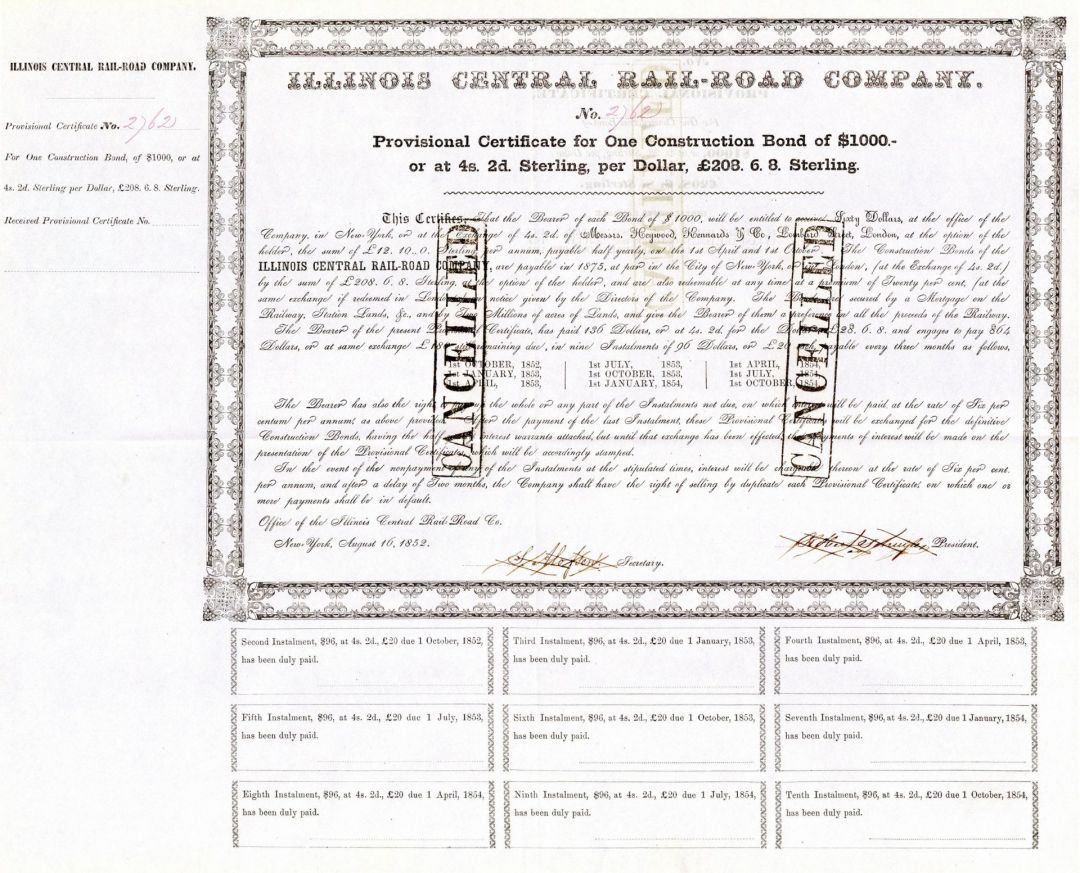 ILLINOIS CENTRAL RAIL-ROAD COMPANY.
Provisional Certificate No. 2762
For One Construction Bond, of $1000, or at
4s. 2d. Sterling per Dollar, £208. 6. 8. Sterling.
Received Provisional Certificate No.
ILLINOIS CENTRAL RAIL-ROAD COMPANY.
No. 2762
Provisional Certificate for One Construction Bond of $1000.-
or at 4s. 2d. Sterling, per Dollar, £208. 6. 8. Sterling.
This Certifies, That the Bearer of each Bond of $1000, will be entitled to Sixty Dollars, at the office of the
Company, in New-York, or at the Exchange of 4s. 2d. of Messrs. Heywood, Kennards & Co, Lombard Street, London, at the option of the
holder, the sum of £12..10..0. Sterling per annum, payable half yearly, on the 1st April and 1st October. The Construction Bonds of the
ILLINOIS CENTRAL RAIL-ROAD COMPANY, are payable in 1875, at par in the City of New-York, or London, (at the Exchange of 4s. 2d.)
by the sum of £208. 6. 8. Sterling, option of the holder, and are also redeemable at any time at a premium of Twenty per cent. (at the
same exchange if redeemed in London notice given by the Directors of the Company. The secured by a Mortgage on the
Railway, Station Lands, &c., and by Two Millions of acres of Lands, and give the Bearer of them a preference in all the proceeds of the Railway.
The Bearer of the present Certificate, has paid 136 Dollars, or at 4s. 2d. for the £28. 6. 8. and engages to pay 864
Dollars, or at same exchange remaining due, in nine Instalments of 96 Dollars, or £20 each, payable every three months as follows,
1st OCTOBER, 1852, 1st JULY, 1853, 1st APRIL, 1854,
1st JANUARY, 1853, 1st OCTOBER, 1853, 1st JULY, 1854,
1st APRIL, 1853, 1st JANUARY, 1854, 1st OCTOBER, 1854.
The Bearer has also the right the whole or any part of the Instalments not due, on which interest will be paid at the rate of Six per
centum per annum; as above provided for the payment of the last Instalment, these Provisional will be exchanged for the definitive
Construction Bonds, having the half interest warrants attached, but until that exchange has been effected, payments of interest will be made on the
presentation of the Provisional Certificates, which will be accordingly stamped.
In the event of the nonpayment of any of the Instalments at the stipulated times, interest will be thereon at the rate of Six per cent.
per annum, and after a delay of Two months, the Company shall have the right of selling by duplicate each Provisional Certificate, on which one or
more payments shall be in default.
Office of the Illinois Central Rail-Road Co.
New-York, August 16, 1852.
President.
Secretary.
CANCELLED
CANCELLED
Second Instalment, $96, at 4s. 2d., £20 due 1 October, 1852,
has been duly paid.
Third Instalment, $96, at 4s. 2d., £20 due 1 January, 1853,
has been duly paid.
Fourth Instalment, $96, at 4s. 2d., £20 due 1 April, 1853,
has been duly paid.
Fifth Instalment, $96, at 4s. 2d., £20 due 1 July, 1853,
has been duly paid.
Sixth Instalment, $96, at 4s. 2d., £20 due 1 October, 1853,
has been duly paid.
Seventh Instalment, $96, at 4s. 2d., £20 due 1 January, 1854,
has been duly paid.
Eighth Instalment, $96, at 4s. 2d., £20 due 1 April, 1854,
has been duly paid.
Ninth Instalment, $96, at 4s. 2d., £20 due 1 July, 1854,
has been duly paid.
Tenth Instalment, $96, at 4s. 2d., £20 due 1 October, 1854,
has been duly paid.